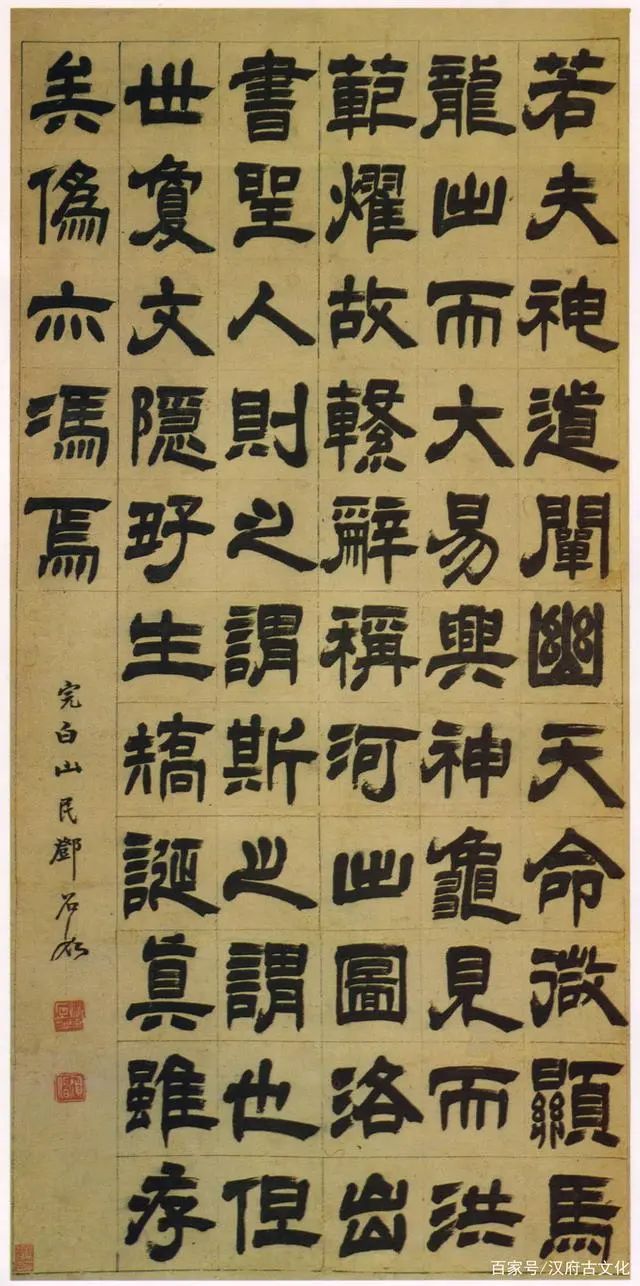 若夫神道闡幽天命微顯馬
龍出而大易興神龜見而洪
範燿故繫辭稱河出圖洛出
書聖人則之謂斯之謂也但
世敻文隱好生矯誕眞雖存
矣偽亦馮焉
完白山民鄧石如
百家号/汉府古文化